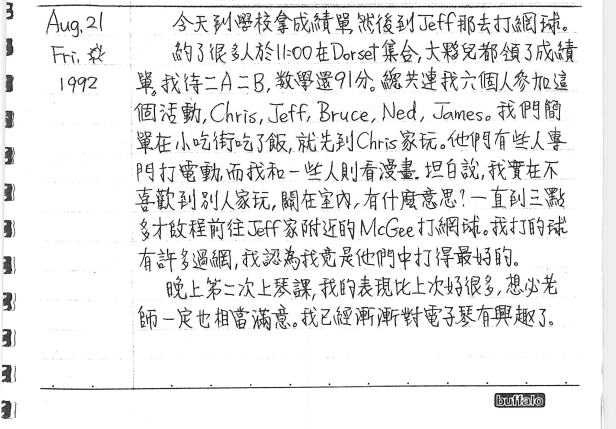 Aug. 21
Fri.
1992
今天到學校拿成績單,然後到Jeff那去打網球。
約了很多人於11:00在Dorset集合,大夥兒都領了成績
單。我得二A二B,數學還91分。總共連我六個人參加這
個活動,Chris, Jeff, Bruce, Ned, James。我們簡
單在小吃街吃了飯,就先到Chris家玩。他們有些人專
門打電動,而我和一些人則看漫畫。坦白說,我實在不
喜歡到別人家玩,關在室內,有什麼意思?一直到三點
多才啟程前往Jeff家附近的McGee打網球。我打的球
有許多過網,我認為我竟是他們中打得最好的。
晚上第二次上琴課,我的表現比上次好很多,想必老
師一定也相當滿意。我已經漸漸對電子琴有興趣了。
buffalo